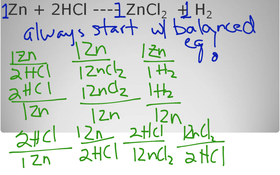 1Zn + 2HCl ---- 1ZnCl2 + 1H2
always start w/ balanced
eq.
1Zn/2HCl 1Zn/1ZnCl2 1Zn/1H2
2HCl/1Zn 1ZnCl2/1Zn 1H2/1Zn
2HCl/1Zn 1Zn/2HCl 2HCl/1ZnCl2 1ZnCl2/2HCl